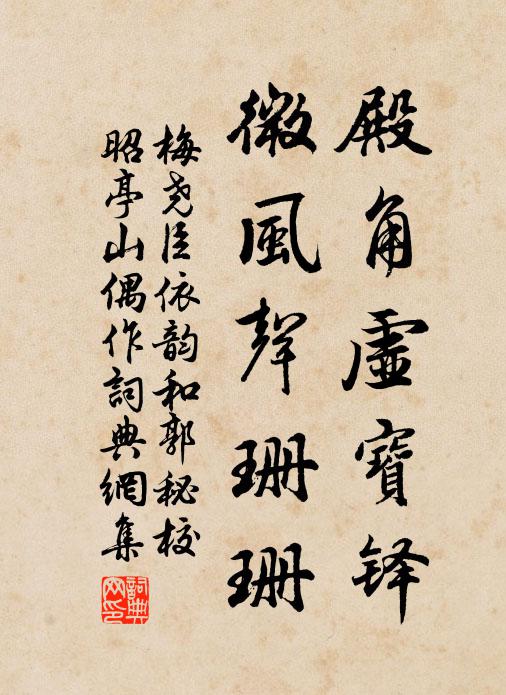 殿角虛寶铎
微風聲珊珊
梅尧臣依韵和郭秘校
昭亭山偶作詞典網集
詞典網印